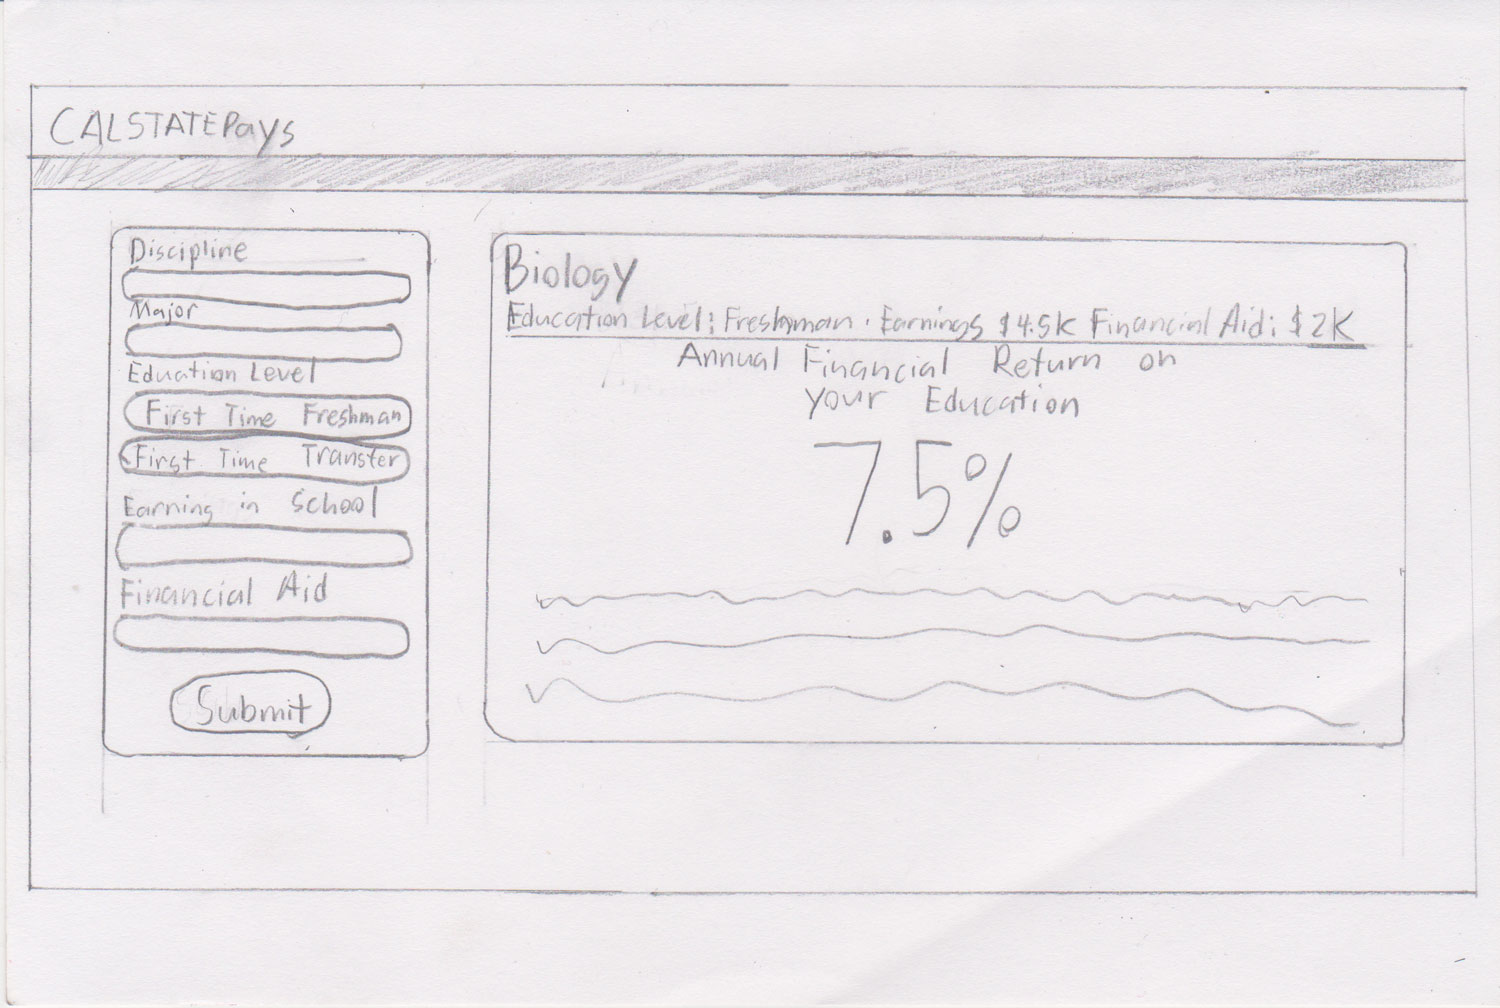 CALSTATEPays
Discipline
Major
Eduation Level
First Time Freshman
First Time Transfer
Earning in School
Financial Aid
Submit
Biology
Education Level: Freshman · Earnings $4.5K Financial Aid: $2K
Annual Financial Return on
your Education
7.5%